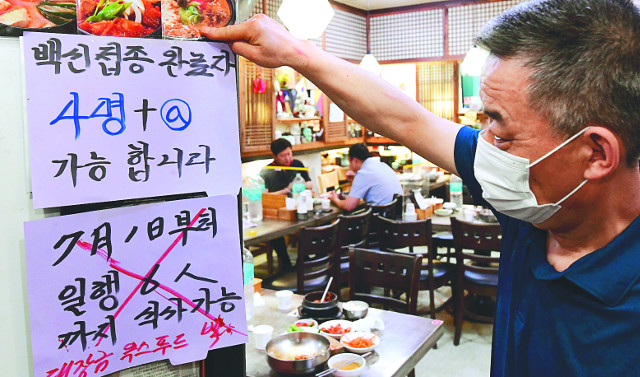 백신접종 완료자
4명+@
가능 합니다
7月 1日부터
일행 6人
까지 식사가능
대장금 푸드